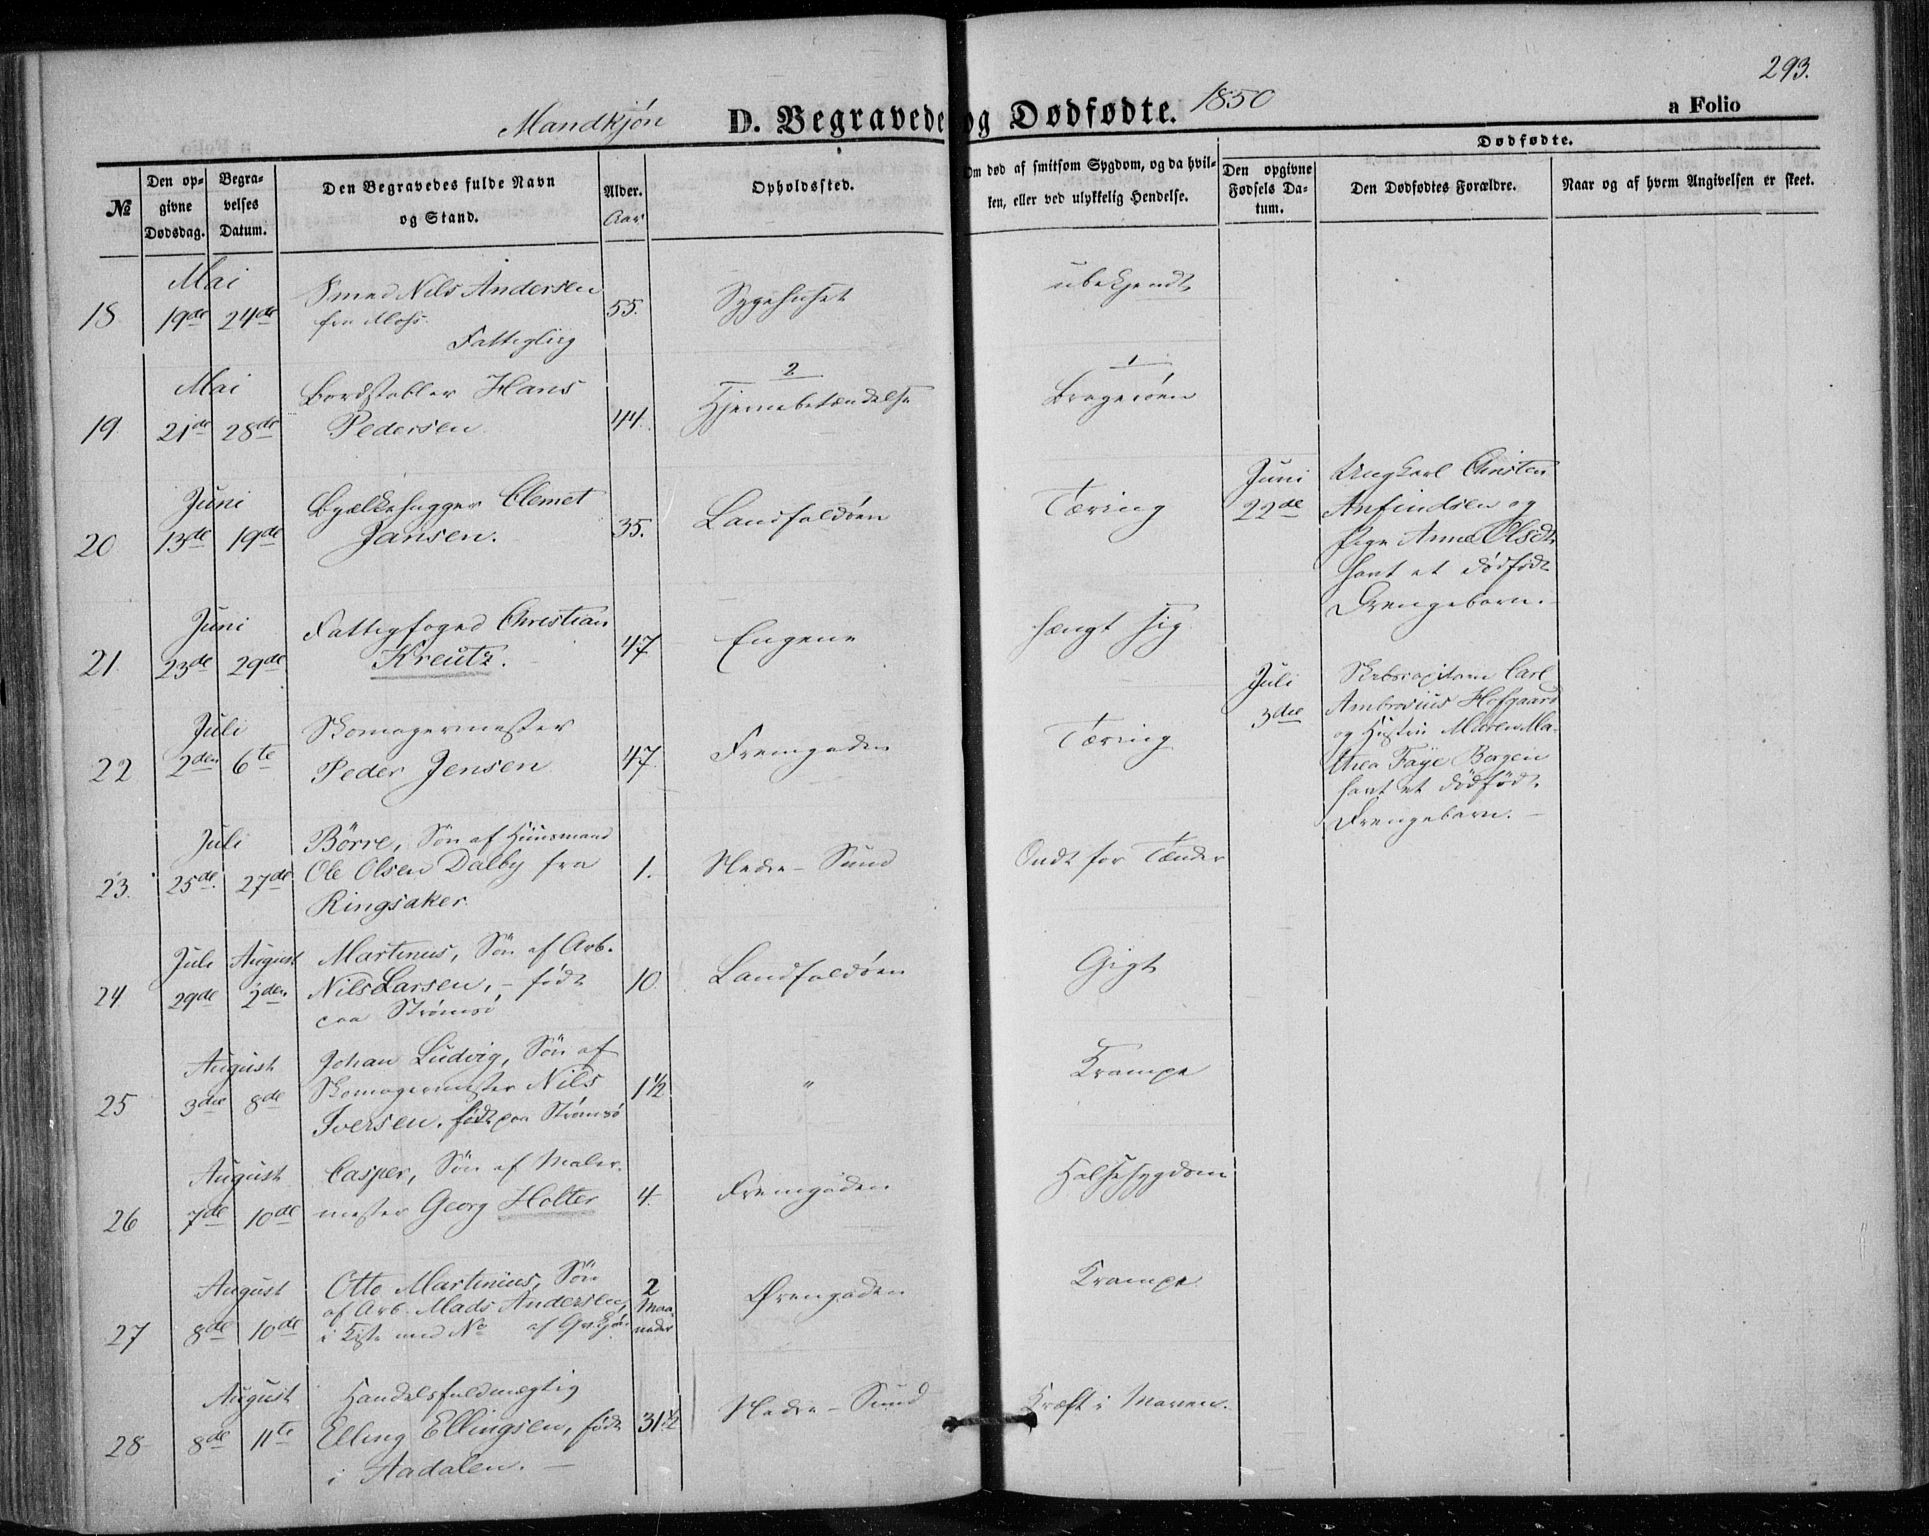 293.
Mandkjøn D. Begravede og Dødfødte. 1850 a Folio
Dødfødte.
№
Den opgivne Dødsdag.
Begravelses Datum.
Den Begravedes fulde Navn og Stand.
Alder.
Aar
Opholdssted.
Om død af smitsom Sygdom, og da hvilken, eller ved ulykkelig Hendelse.
Den opgivne Fødsels Datum.
Den Dødfødtes Forældre.
Naar og af hvem Angivelsen er skeet.
18. Mai 19de 24de
Smed Nils Andersen
fra Moss.
Fattiglig
55. Sygehuset ubekjendt
19. Mai 21de 28de
Bordstabler Hans
Pedersen
44. 2 Hjernebetændelse 1 Bragerøen
20 Juni 13de 19de
Bjælkehugger Clemet
Jansen.
35. Landfaldöen Tæring
Juni 22de
Ungkarl Christen
Anfindsen og
Pige Anne Olsdt.
havt et dödfödt
Drengebarn.
21. Juni 23de 29de
Fattigfoged Christian
Kreutz.
47 Engene hængt sig
Juli 3die
Skibscapitain Carl
Ambrosius Hofgaard
og Hustru Maren Ma-
thea Faye Borgen
havt et dödfödt
Drengebarn.
22 Juli 2den 6te
Skomagermester
Peder Jensen
47. Fremgaden Tæring
23. Juli 25de 27de
Börre, Sön af Huusmand
Ole Olsen Dalby fra
Ringsaker.
1. Nedre-Sund Ondt for Tænder
24. Juli 29de August 2den
Martinus, Sön af Arb.
Nils Larsen, - födt
paa Strömsö
10 Landfaldöen Gigt
25 August 3die 8de
Johan Ludvig, Sön af
Skomagermester Nils
Iversen. födt paa Strömsö
1½ " Krampe
26 August 7de 10de
Casper, Sön af Maler-
mester Georg Holter
4. Fremgaden Halsesygdom
27 August 8de 10de
Otto Martinius, Sön
af Arb. Mads Andersen,
i Kiste med No af Qv.kjön
2 Maaneder Øvregaden Krampe
28 August 8de 11te
Handelsfuldmægtig
Elling Ellingsen, födt
i Aadalen.
31½ Nedre-Sund Kræft i Maven.